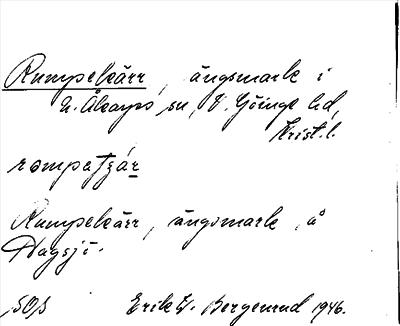 Rumpekärr, ängsmark i
N. Åkarps sn, V. Göinge hd,
Krist. l.
Rumpekärr, ängsmark å
SOS Erik W. Bergenrud 1946.